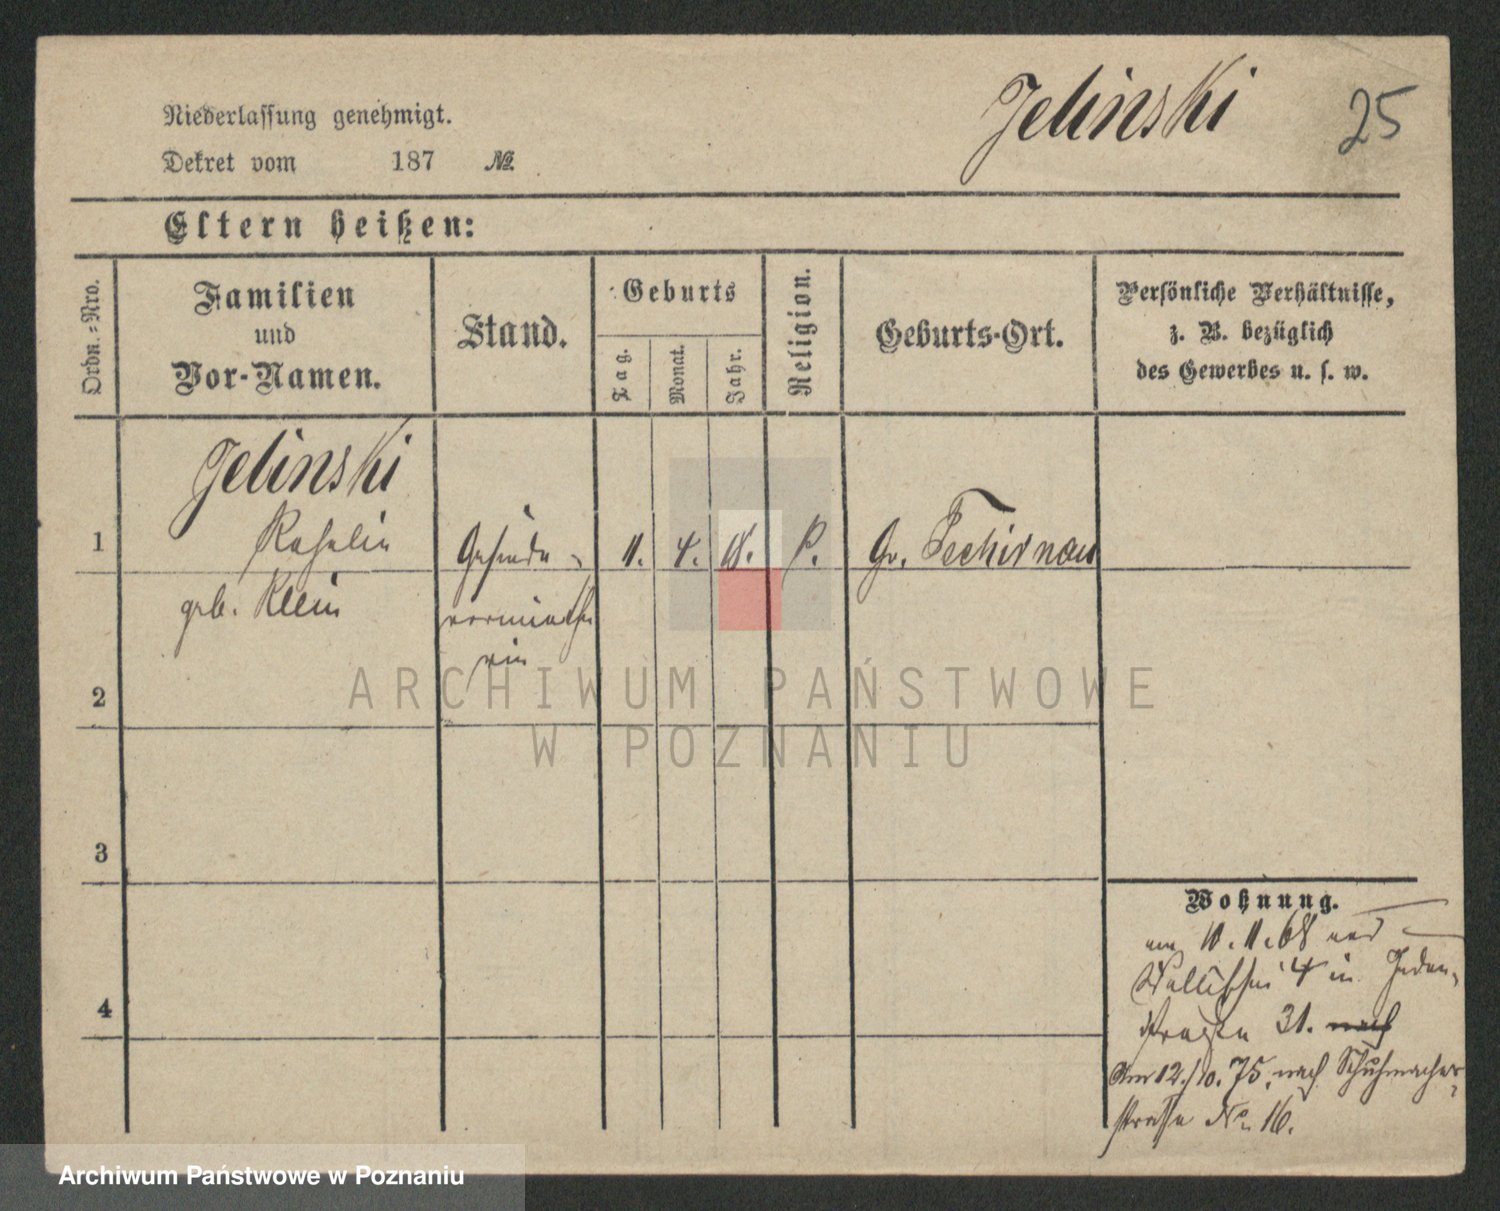 Jelinski 25
Niederlassung genehmigt.
Dekret vom 187 №.
Eltern heißen:
Ordn.-Nro.
Familien
und
Vor-Namen.
Stand.
Geburts
Tag.
Monat.
Jahr.
Religion.
Geburts-Ort.
Persönliche Verhältnisse,
z. B. bezüglich
des Gewerbes u. s. w.
Jelinski
1 Rosalie Gesinde- 11. 4. Gr. Tschirnau
geb. Klein vermieth
erin
2
ARCHIWUM PAŃSTWOWE
W POZNANIU
3
Wohnung.
11.68 von
Wallischei 4 in Juden-
straße 31. nach
Am 12./10. 75. nach Schuhmacher
straße No 16.
4
Archiwum Państwowe w Poznaniu